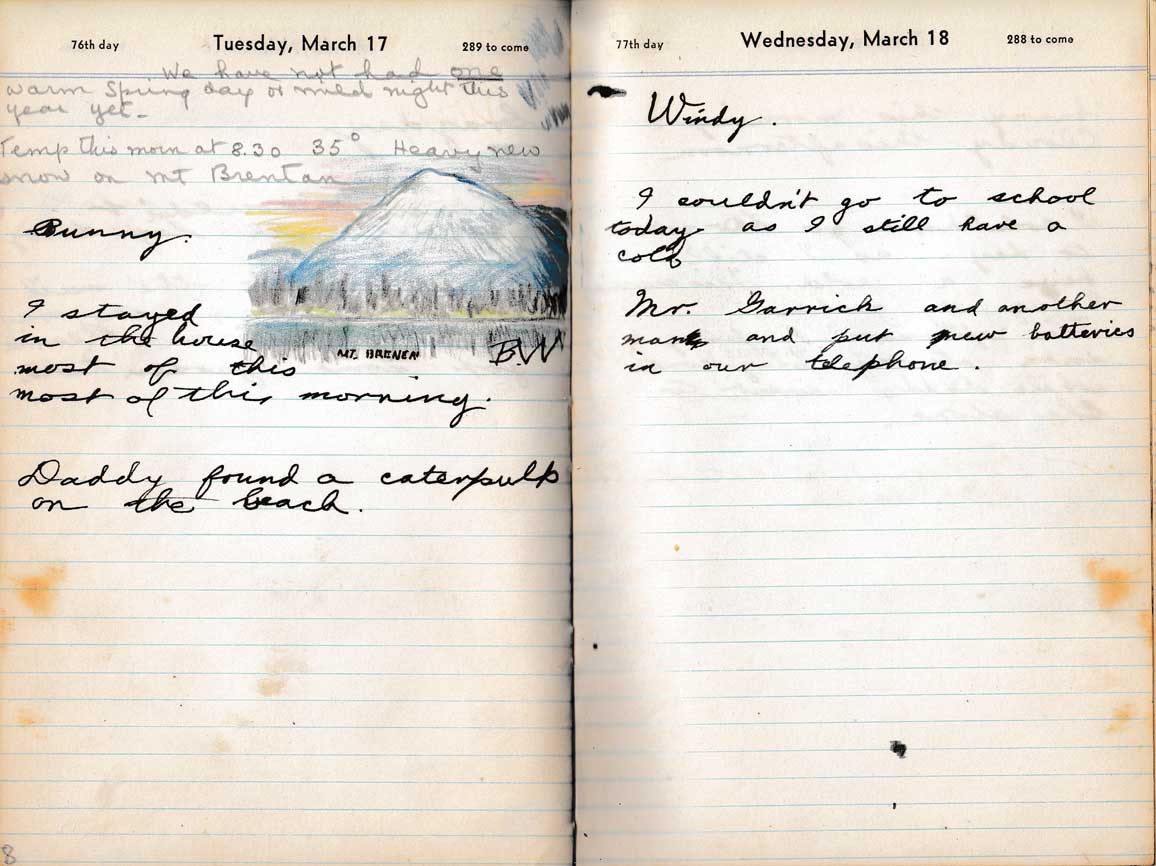 76th day Tuesday, March 17 289 to come
We have not had one
warm Spring day or mild night this
year yet -
Temp this morn at 8.30 35° Heavy new
snow on Mt Brentan
Sunny.
I stayed
in the house
most of this
most of this morning.
MT. BRENEN
B.W
Daddy found a caterpulb
on the beach.
8
77th day Wednesday, March 18 288 to come
Windy.
I couldn't go to school
today as I still have a
cold
Mr. Garrick and another
man and put new batteries
in our telephone.